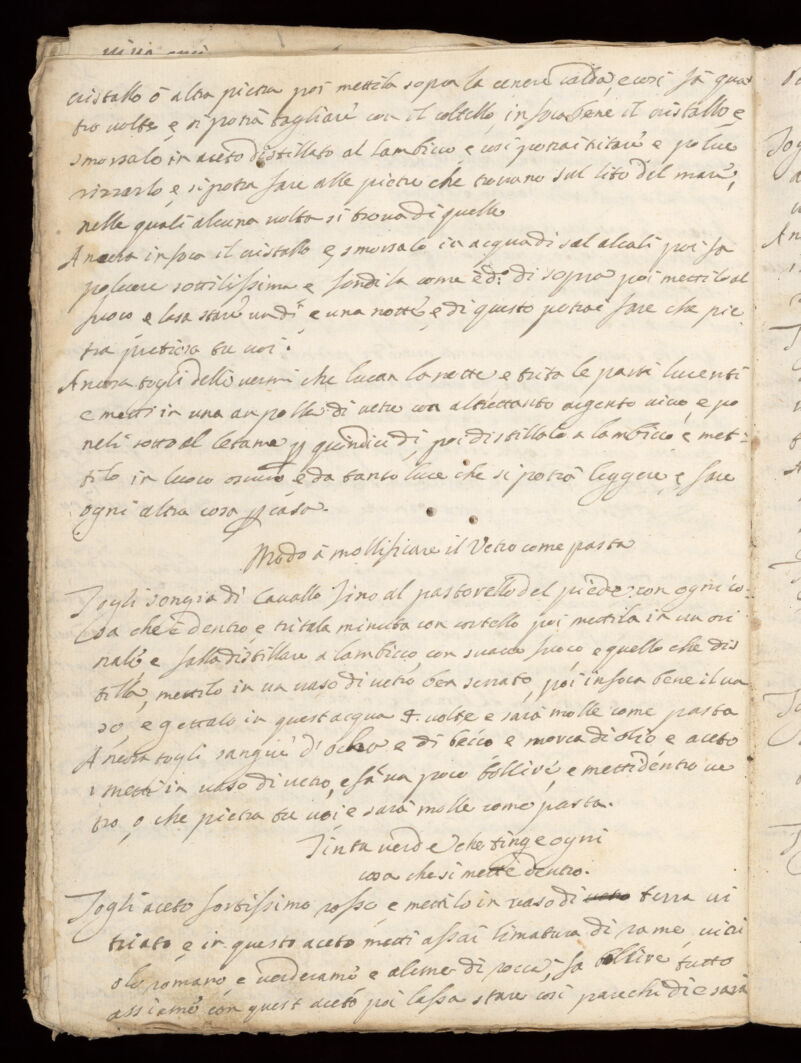 cristallo ó altra pietra poi mettila sopra la cenere calda, e cosi fà quat
tro volte e si potrà tagliare con il coltello, infoca bene il cristallo e
smorsalo in aceto distillato al lambicco, e cosi potrai tritare e polue
rizzarlo, e si potra fare alle pietre che trovano sul lito del mare,
nelle quali alcuna volta si trova di quelle
Ancora infoca il cristallo e smorsalo in acqua di sal alcali poi fa
polvere sottilissima e fondila come è d:º di sopra poi mettilo al
fuoco e lasa stare un dì e una notte, e di questo potrai fare che pie
tra pretiosa tu uoi.
Ancora togli delli vermi che lucan la notte e trita le parti lucenti
e metti in una anpolla di vetro con altrettanto argento vivo, e po
neli sotto al letame p quindici dì, poi distillalo a lambicco e met-
tilo in luoco oscuro, e da tanto luce che si potrà leggere e fare
ogni altra cosa p casa.
Modo à mollificare il Vetro come pasta
Togli songia di Cavallo fino al pastorello del piede con ogni co-
sa che è dentro e tritala minuta con cortello poi mettila in un ori
nale e falla distillare a lambicco con suave fuoco, e quello che dis
tilla, mettilo in un vaso di vetro ben serrato, poi infoca bene il va
so, e gettalo in quest acqua 4. volte e sarà molle come pasta
Ancora togli sangue d'ocha e di becco e morca di olio e aceto
e metti in vaso di vetro, e fà un poco bollire, e metti dentro ve
tro, o che pietra tu uoi, e sarà molle come pasta.
Tinta verde che tinge ogni
cosa che si mette dentro.
Togli aceto fortissimo rosso, e mettilo in vaso di vetro terra vi
triato e in questo aceto metti assai limatura di rame, vitri
olo romano, e verderame e alume di rocca, fa bollire tutto
assieme con quest aceto poi lassa stare cosi parechi di e sarà